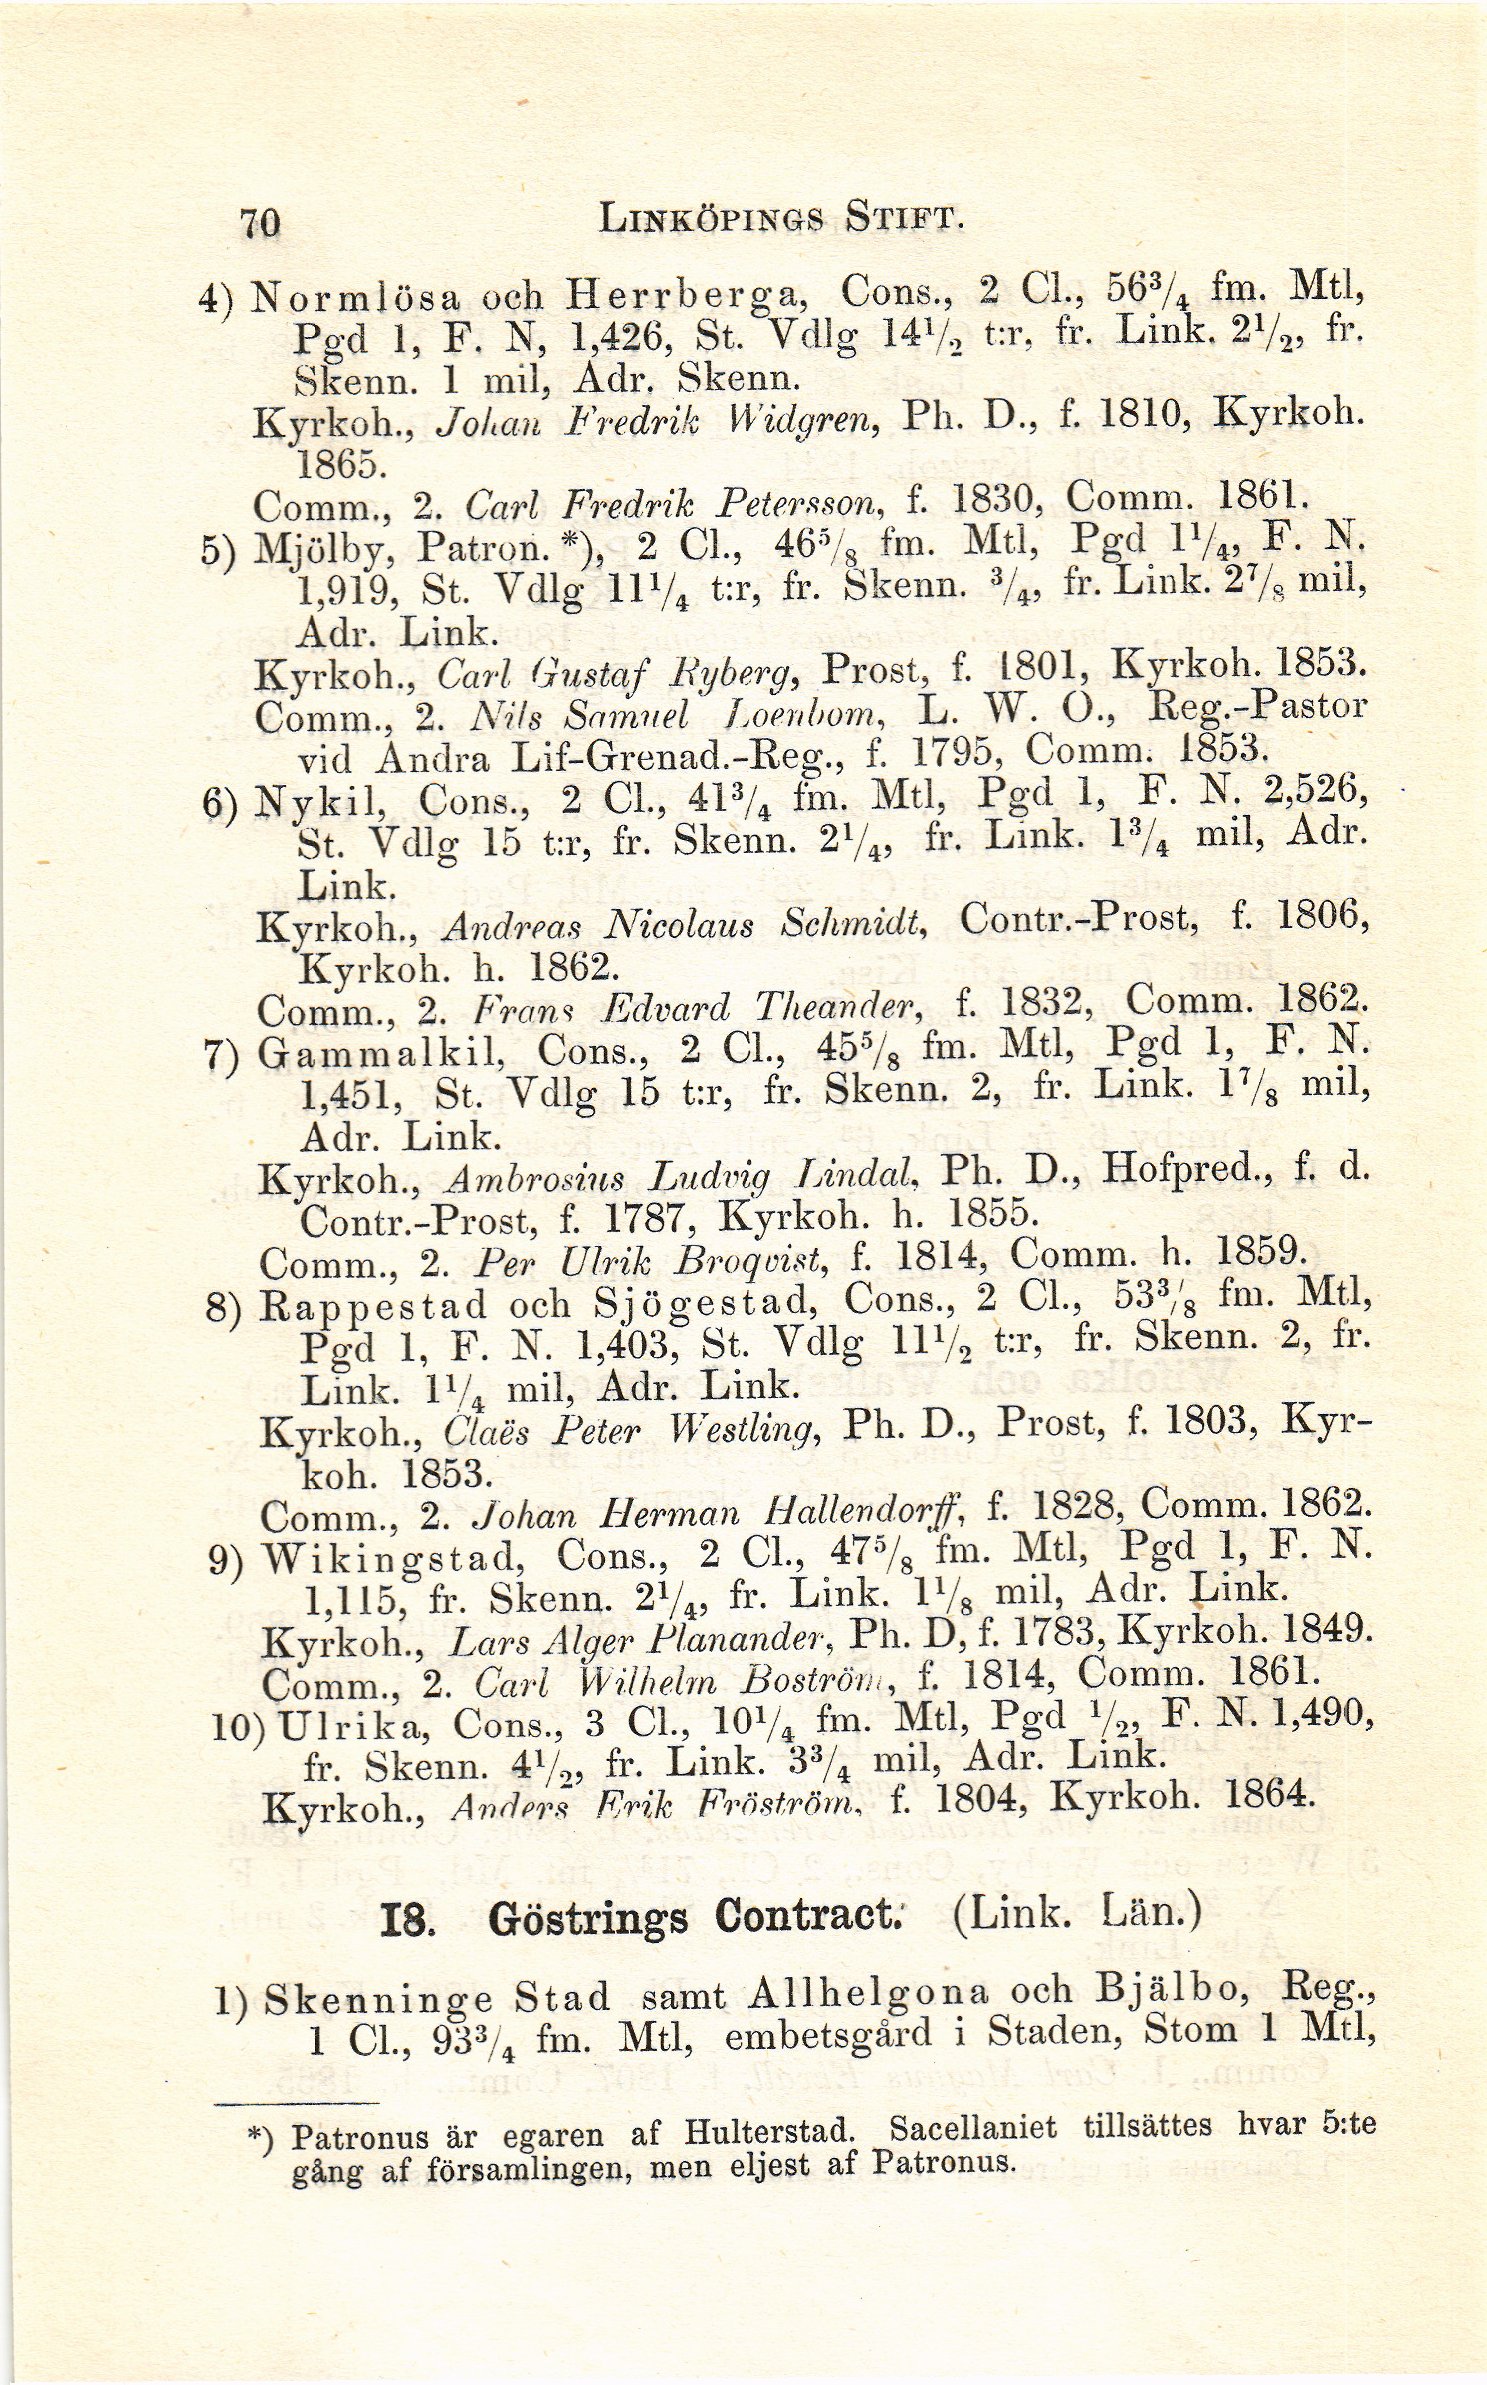 70 LINKÖPINGS STIFT.
4) Normlösa och Herrberga, Cons., 2 Cl., 56³/₄ fm. Mtl,
Pgd 1, F. N, 1,426, St. Vdlg 14¹/₂ t:r, fr. Link. 2¹/₂, fr.
Skenn. 1 mil, Adr. Skenn.
Kyrkoh., Johan Fredrik Widgren, Ph. D., f. 1810, Kyrkoh.
1865.
Comm., 2. Carl Fredrik Petersson, f. 1830, Comm. 1861.
5) Mjölby, Patron. *), 2 Cl., 46⁵/₈ fm. Mtl, Pgd 1¹/₄, F. N.
1,919, St. Vdlg 11¹/₄ t:r, fr. Skenn. ³/₄, fr. Link. 2⁷/₈ mil,
Adr. Link.
Kyrkoh., Carl Gustaf Ryberg, Prost, f. 1801, Kyrkoh. 1853.
Comm., 2. Nils Samuel Loenbom, L. W. O., Reg.-Pastor
vid Andra Lif-Grenad.-Reg., f. 1795, Comm. 1853.
6) Nykil, Cons., 2 Cl., 41³/₄ fm. Mtl, Pgd 1, F. N. 2,526,
St. Vdlg 15 t:r, fr. Skenn. 2¹/₄, fr. Link. 1³/₄ mil, Adr.
Link.
Kyrkoh., Andreas Nicolaus Schmidt, Contr.-Prost, f. 1806,
Kyrkoh. h. 1862.
Comm., 2. Frans Edvard Theander, f. 1832, Comm. 1862.
7) Gammalkil, Cons., 2 Cl., 45⁵/₈ fm. Mtl, Pgd 1, F. N.
1,451, St. Vdlg 15 t:r, fr. Skenn. 2, fr. Link. 1⁷/₈ mil,
Adr. Link.
Kyrkoh., Ambrosius Ludvig Lindal, Ph. D., Hofpred., f. d.
Contr.-Prost, f. 1787, Kyrkoh. h. 1855.
Comm., 2. Per Ulrik Broqvist, f. 1814, Comm. h. 1859.
8) Rappestad och Sjögestad, Cons., 2 Cl., 53³/₈ fm. Mtl,
Pgd 1, F. N. 1,403, St. Vdlg 11¹/₂ t:r, fr. Skenn. 2, fr.
Link. 1¹/₄ mil, Adr. Link.
Kyrkoh., Claës Peter Westling, Ph. D., Prost, f. 1803, Kyr-
koh. 1853.
Comm., 2. Johan Herman Hallendorff, f. 1828, Comm. 1862.
9) Wikingstad, Cons., 2 Cl., 47⁵/₈ fm. Mtl, Pgd 1, F. N.
1,115, fr. Skenn. 2¹/₄, fr. Link. 1¹/₈ mil, Adr. Link.
Kyrkoh., Lars Alger Planander, Ph. D, f. 1783, Kyrkoh. 1849.
Comm., 2. Carl Wilhelm Boström, f. 1814, Comm. 1861.
10) Ulrika, Cons., 3 Cl., 10¹/₄ fm. Mtl, Pgd ¹/₂, F. N. 1,490,
fr. Skenn. 4¹/₂, fr. Link. 3³/₄ mil, Adr. Link.
Kyrkoh., Anders Erik Fröström, f. 1804, Kyrkoh. 1864.
18. Göstrings Contract. (Link. Län.)
1) Skenninge Stad samt Allhelgona och Bjälbo, Reg.,
1 Cl., 93³/₄ fm. Mtl, embetsgård i Staden, Stom 1 Mtl,
*) Patronus är egaren af Hulterstad. Sacellaniet tillsättes hvar 5:te
gång af församlingen, men eljest af Patronus.